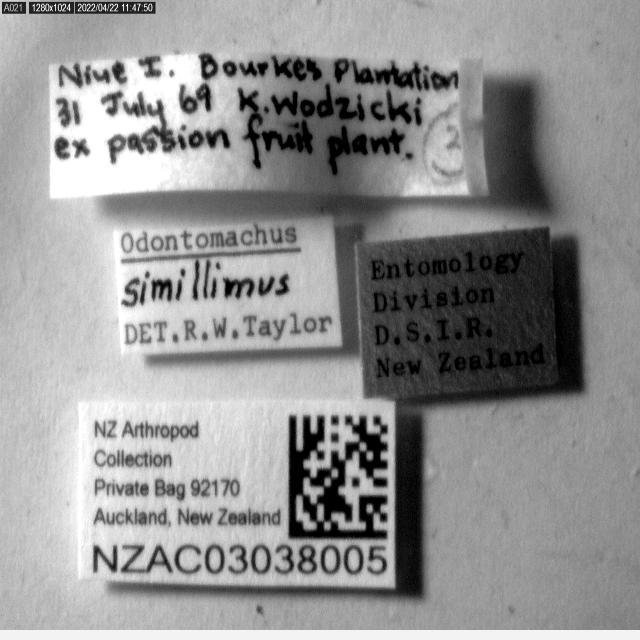 A021 1280x1024 2022/04/22 11:47:50
Niue I. Bourkes Plantation
31 July 69 K.Wodzicki
ex passion fruit plant.
2
Odontomachus
simillimus
DET.R.W.Taylor
Entomology
Division
D.S.I.R.
New Zealand
NZ Arthropod
Collection
Private Bag 92170
Auckland, New Zealand
NZAC03038005